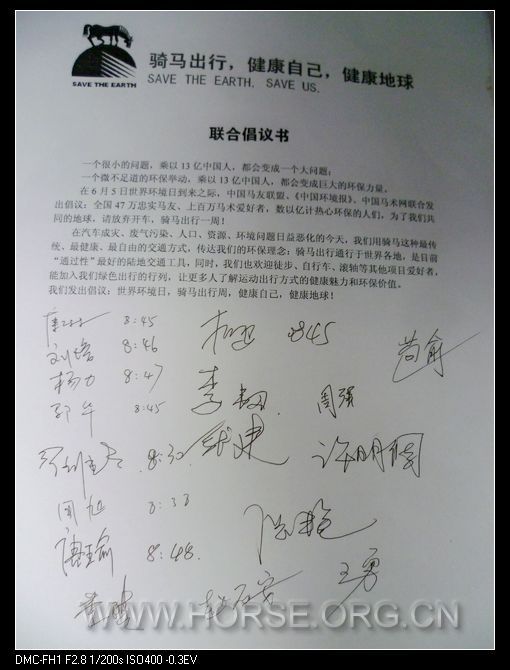 骑马出行，健康自己，健康地球
SAVE THE EARTH, SAVE US.
SAVE THE EARTH
联合倡议书
一个很小的问题，乘以 13 亿中国人，都会变成一个大问题；
一个微不足道的环保举动，乘以 13 亿中国人，都会变成巨大的环保力量。
在 6 月 5 日世界环境日到来之际，中国马友联盟、《中国环境报》、中国马术网联合发
出倡议：全国 47 万忠实马友、上百万马术爱好者，数以亿计热心环保的人们，为了我们共
同的地球，请放弃开车，骑马出行一周！
在汽车成灾、废气污染、人口、资源、环境问题日益恶化的今天，我们用骑马这种最传
统、最健康、最自由的交通方式，传达我们的环保理念；骑马出行通行于世界各地，是目前
“通过性”最好的陆地交通工具，同时，我们也欢迎徒步、自行车、滚轴等其他项目爱好者，
能加入我们绿色出行的行列，让更多人了解运动出行方式的健康魅力和环保价值。
我们发出倡议：世界环境日，骑马出行周，健康自己，健康地球！
8:45
8:45
尚俞
刘培 8:46
杨力 8:47
李
周强
郭华 8:45
8:30
建
许明伟
周旭 8:38
陈艳
唐玉瑜 8:48.
王勇
WWW.HORSE.ORG.CN
DMC-FH1 F2.8 1/200s ISO400 -0.3EV